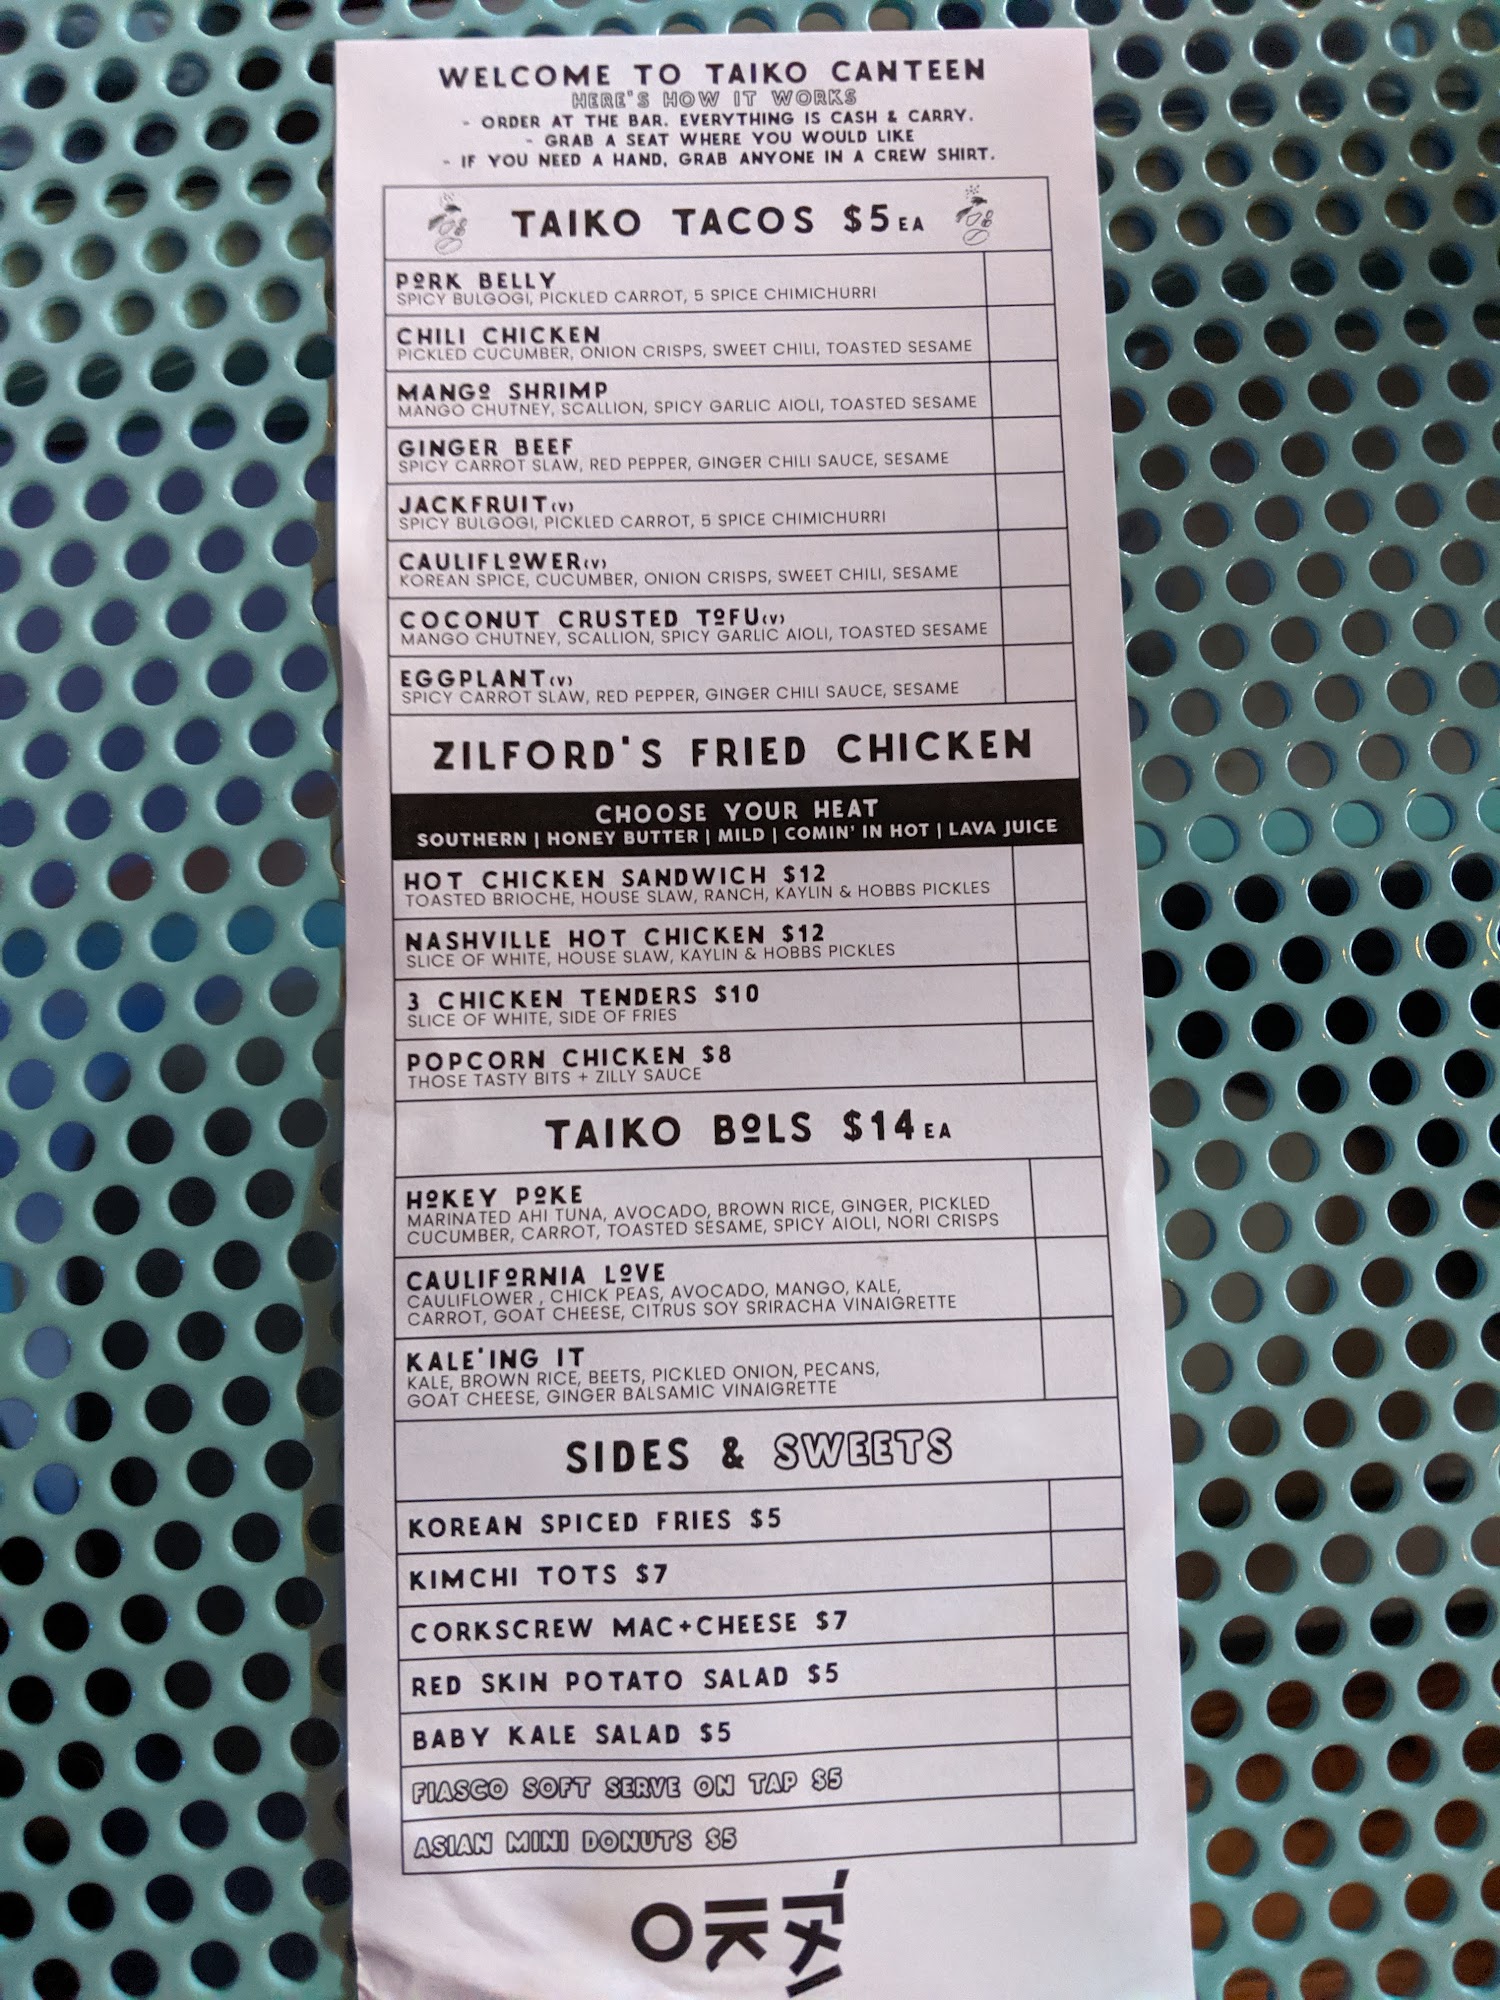 WELCOME TO TAIKO CANTEEN
HERE'S HOW IT WORKS
- ORDER AT THE BAR. EVERYTHING IS CASH & CARRY.
- GRAB A SEAT WHERE YOU WOULD LIKE
- IF YOU NEED A HAND, GRAB ANYONE IN A CREW SHIRT.
TAIKO TACOS $5 EA
PORK BELLY
SPICY BULGOGI, PICKLED CARROT, 5 SPICE CHIMICHURRI
CHILI CHICKEN
PICKLED CUCUMBER, ONION CRISPS, SWEET CHILI, TOASTED SESAME
MANGO SHRIMP
MANGO CHUTNEY, SCALLION, SPICY GARLIC AIOLI, TOASTED SESAME
GINGER BEEF
SPICY CARROT SLAW, RED PEPPER, GINGER CHILI SAUCE, SESAME
JACKFRUIT (V)
SPICY BULGOGI, PICKLED CARROT, 5 SPICE CHIMICHURRI
CAULIFLOWER (V)
KOREAN SPICE, CUCUMBER, ONION CRISPS, SWEET CHILI, SESAME
COCONUT CRUSTED TOFU (V)
MANGO CHUTNEY, SCALLION, SPICY GARLIC AIOLI, TOASTED SESAME
EGGPLANT (V)
SPICY CARROT SLAW, RED PEPPER, GINGER CHILI SAUCE, SESAME
ZILFORD'S FRIED CHICKEN
CHOOSE YOUR HEAT
SOUTHERN | HONEY BUTTER | MILD | COMIN' IN HOT | LAVA JUICE
HOT CHICKEN SANDWICH $12
TOASTED BRIOCHE, HOUSE SLAW, RANCH, KAYLIN & HOBBS PICKLES
NASHVILLE HOT CHICKEN $12
SLICE OF WHITE, HOUSE SLAW, KAYLIN & HOBBS PICKLES
3 CHICKEN TENDERS $10
SLICE OF WHITE, SIDE OF FRIES
POPCORN CHICKEN $8
THOSE TASTY BITS + ZILLY SAUCE
TAIKO BOLS $14 EA
HOKEY POKE
MARINATED AHI TUNA, AVOCADO, BROWN RICE, GINGER, PICKLED
CUCUMBER, CARROT, TOASTED SESAME, SPICY AIOLI, NORI CRISPS
CAULIFORNIA LOVE
CAULIFLOWER , CHICK PEAS, AVOCADO, MANGO, KALE,
CARROT, GOAT CHEESE, CITRUS SOY SRIRACHA VINAIGRETTE
KALE'ING IT
KALE, BROWN RICE, BEETS, PICKLED ONION, PECANS,
GOAT CHEESE, GINGER BALSAMIC VINAIGRETTE
SIDES & SWEETS
KOREAN SPICED FRIES $5
KIMCHI TOTS $7
CORKSCREW MAC+CHEESE $7
RED SKIN POTATO SALAD $5
BABY KALE SALAD $5
FIASCO SOFT SERVE ON TAP $5
ASIAN MINI DONUTS $5
TAIKO